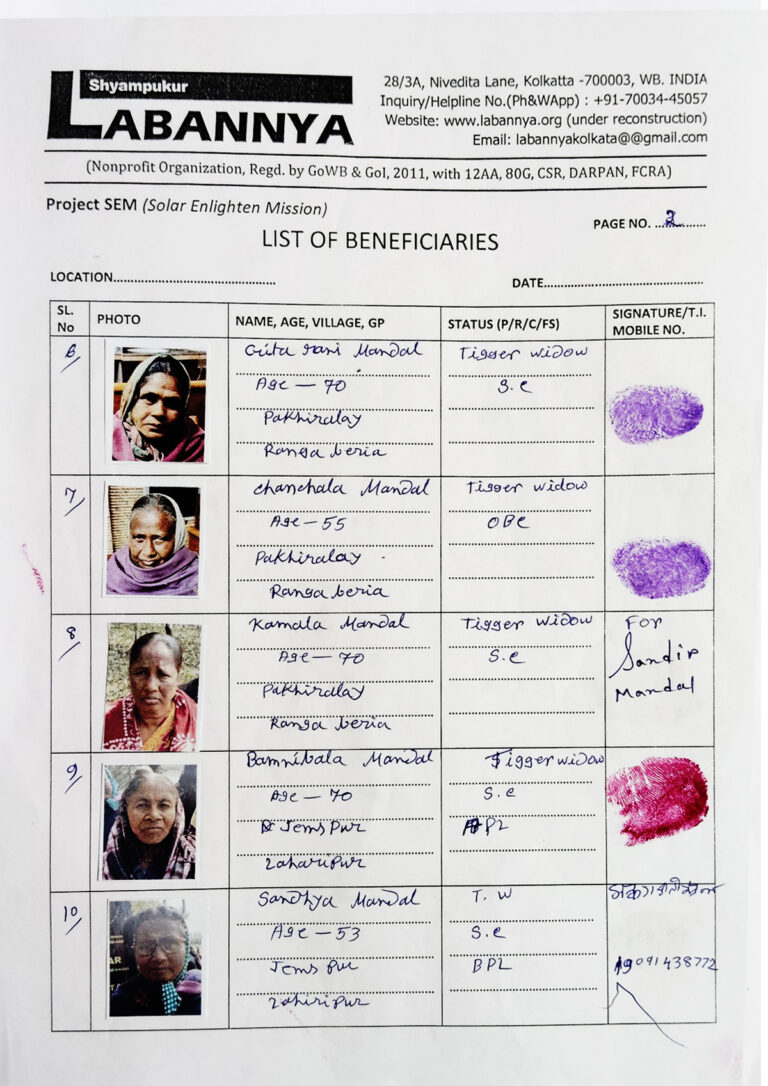 Shyampukur
LABANNYA
28/3A, Nivedita Lane, Kolkatta -700003, WB. INDIA
Inquiry/Helpline No.(Ph&WApp) : +91-70034-45057
Website: www.labannya.org (under reconstruction)
Email: labannyakolkata@@gmail.com
(Nonprofit Organization, Regd. by GoWB & GoI, 2011, with 12AA, 80G, CSR, DARPAN, FCRA)
Project SEM (Solar Enlighten Mission)
PAGE NO. ...2.......
LIST OF BENEFICIARIES
LOCATION............................................
DATE............................................
SL. No PHOTO NAME, AGE, VILLAGE, GP STATUS (P/R/C/FS) SIGNATURE/T.I. MOBILE NO.
6 Gita rani Mandal Tigger widow
Age — 70 S.C
Pakhiralay
Ranga beria
7 Chanchala Mandal Tigger widow
Age — 55 OBC
Pakhiralay
Ranga beria
8 Kamala Mandal Tigger widow For
Age — 70 S.C Sandip
Pakhiralay Mandal
Ranga beria
9 Bamnibala Mandal Tigger widow
Age — 70 S.C
Jems Pur BPL
Laharipur
10 Sandhya Mandal T. W
Age — 53 S.C
Jems Pur BPL 9091438772
Lahiripur